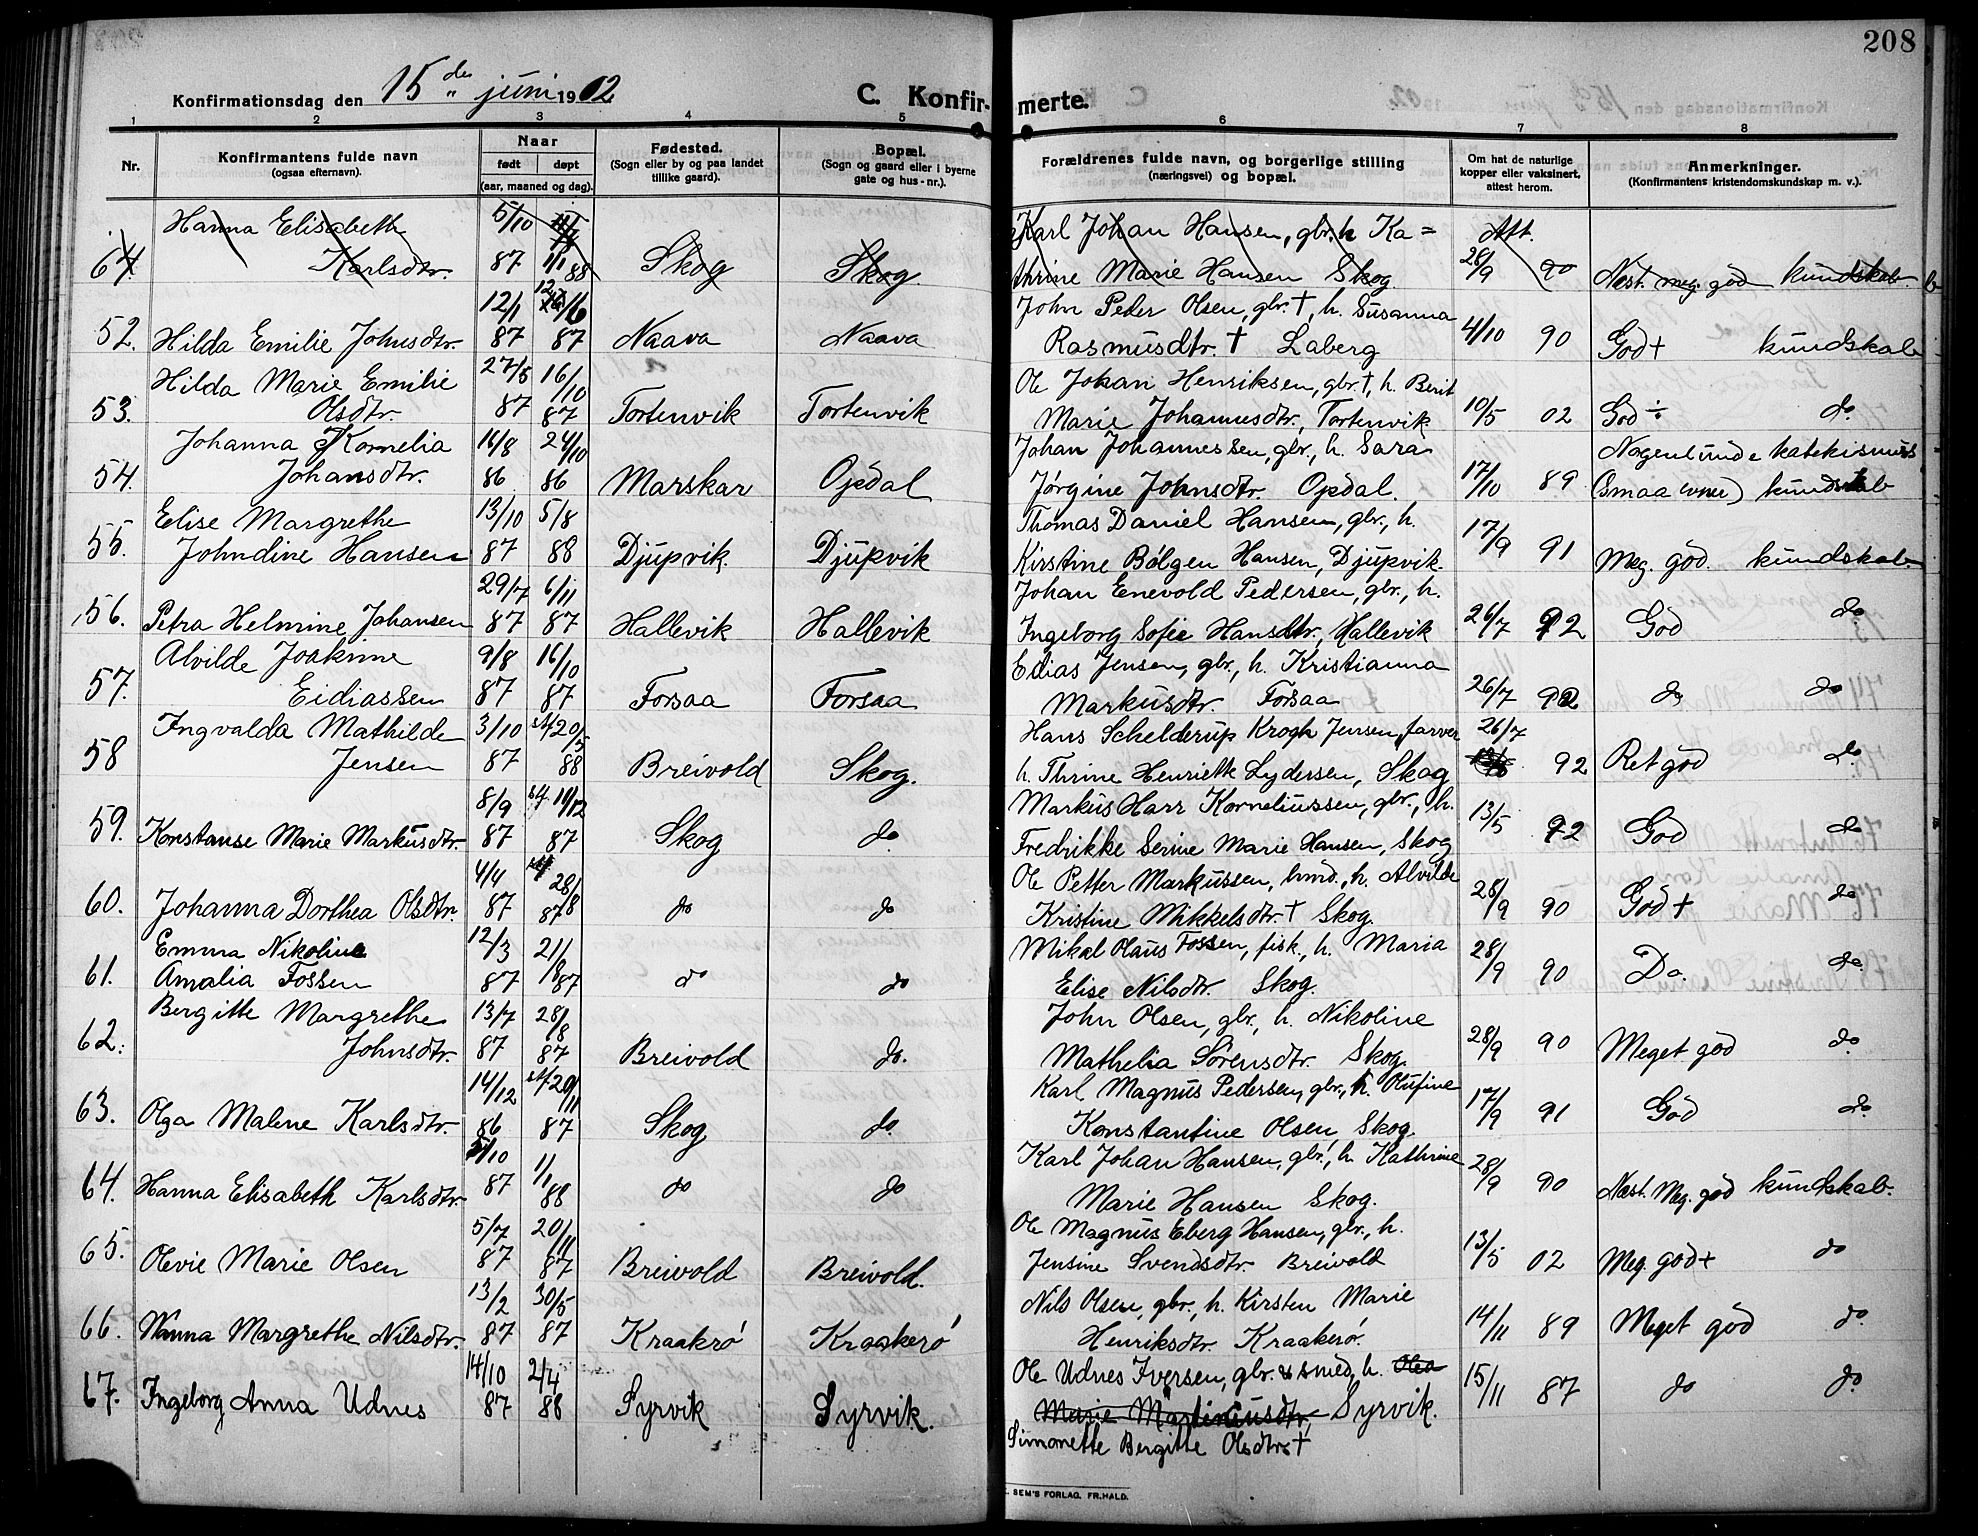 208
Konfirmationsdag den 15de juni 1902.
C. Konfirmerte.
1 2 3 4 5 6 7 8
Nr.
Konfirmantens fulde navn
(ogsaa efternavn).
Naar
født døpt
(aar, maaned og dag).
Fødested.
(Sogn eller by og paa landet
tillike gaard).
Bopæl.
(Sogn og gaard eller i byerne
gate og hus-nr.).
Forældrenes fulde navn, og borgerlige stilling
(næringsvei) og bopæl.
Om hat de naturlige
kopper eller vaksinert,
attest herom.
Anmerkninger.
(Konfirmantens kristendomskundskap m. v.).
Hanna Elisabeth 5/10 Karl Johan Hansen, gbr., h. Ka= Att.
64. Karlsdtr. 87 1/1 88 Skog Skog. thrine Marie Hansen Skog 28/9 90 Næst. meg. god kundskab.
12/1 12/6 John Peder Olsen, gbr. †, h. Susanna
52. Hilda Emilie Johnsdtr. 87 87 Naava Naava Rasmusdtr. † Laberg 4/10 90 God + kundskab
Hilda Marie Emilie 27/5 16/10 Ole Johan Henriksen, gbr. †, h. Berit
53. Olsdtr. 87 87 Tortenvik Tortenvik Marie Johannesdtr., Tortenvik 10/5 02 God ÷ do.
Johanna Kornelia 16/8 24/10 Johan Johannessen, gbr., h. Sara Nogenlunde katekismus
54. Johansdtr. 86 86 Marskar Opdal Jørgine Johnsdtr. Opdal. 17/10 89 (smaa evner) kundskab
Elise Margrethe 13/10 5/8 Thomas Daniel Hansen, gbr., h.
55. Johndine Hansen 87 88 Djupvik. Djupvik Kirstine Bølgen Hansen, Djupvik. 17/9 91 Meg. god. kundskab
29/7 6/11 Johan Enevold Pedersen, gbr., h.
56. Petra Helmine Johansen 87 87 Hallevik Hallevik Ingeborg Sofie Hansdtr., Hallevik 26/7 92 God do
Alvilde Joakime 9/8 16/10 Edias Jensen, gbr., h. Kristianna
57. Eidiassen 87 87 Forsaa Forsaa Markusdtr. Forsaa 26/7 92 do do
Ingvalda Mathilde 3/10 st/20/5 Hans Schelderup Krogh Jensen, farver 26/7
58 Jensen 87 88 Breivold Skog. h. Thrine Henriette Lydersen, Skog 92 Ret god do.
8/9 st/ 19/12 Markus Harr Korneliussen, gbr., h.
59. Konstanse Marie Markusdtr. 87 87 Skog do. Fredrikke Serine Marie Hansen, Skog 13/5 92 God do
4/4 28/8 Ole Petter Markussen, hmd., h. Alvilde
60. Johanna Dorthea Olsdtr. 87 87 do do Kristine Mikkelsdtr. † Skog. 28/9 90 God + do
Emma Nikoline 12/3 21/8 Mikal Olaus Fossen, fisk., h. Maria
61. Amalia Fossen 87 87 do do Elise Nilsdtr. Skog. 28/9 90 Do. do.
Bergitte Margrethe 13/7 28/8 John Olsen, gbr., h. Nikoline
62. Johnsdtr. 87 87 Breivold do. Mathelia Sørensdtr. Skog. 28/9 90 Meget god do.
14/12 st/20/11 Karl Magnus Pedersen, gbr., h. Olufine
63. Olga Malene Karlsdtr. 86 87 Skog do. Konstantine Olsen Skog. 17/9 91 God do.
5/10 1/1 Karl Johan Hansen, gbr., h. Kathrine
64. Hanna Elisabeth Karlsdtr. 87 88 do do Marie Hansen Skog. 28/9 90 Næst. Meg. god kundskab.
5/7 20/11 Ole Magnus Eberg Hansen, gbr., h.
65. Olevie Marie Olsen 87 87 Breivold Breivold. Jensine Svendsdtr. Breivold 13/5 02 Meg. god + do
13/2 30/5 Nils Olsen, gbr., h. Kirsten Marie
66. Nanna Margrethe Nilsdtr. 87 87 Kraakrø Kraakerø Henriksdtr. Kraakerø. 14/11 89 Meget god do.
14/10 2/4 Ole Udnes Iversen, gbr. & smed, h. Olea
67. Ingeborg Anna Udnes 87 88 Syrvik Syrvik. Marie Martinusdtr, Syrvik. 15/11 87 do do.
Simonette Bergitte Olsdtr. †
SEM'S FORLAG. FR.HALD.